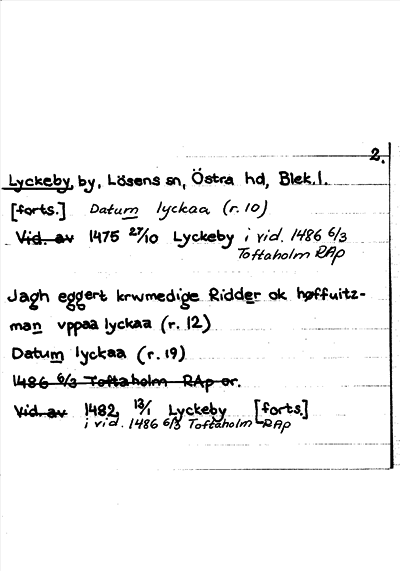 2.
Lyckeby, by, Lösens sn, Östra hd, Blek. l.
[forts.] Datum lyckaa (r. 10)
Vid. av 1475 27/10 Lyckeby i vid. 1486 6/3
Toftaholm RAp
Jagh eggert krwmedige Ridder ok høffuitz-
man vppaa lyckaa (r. 12)
Datum lyckaa (r. 19)
1486 6/3 Toftaholm RAp or.
Vid. av 1482 13/1 Lyckeby [forts.]
i vid. 1486 6/3 Toftaholm RAp